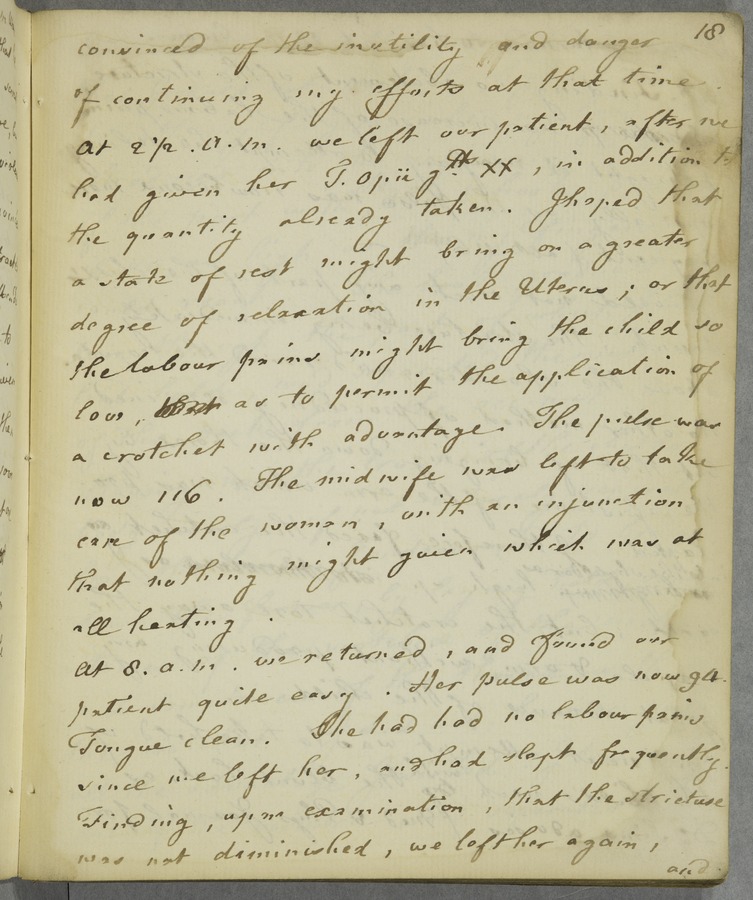 18
convinced of the inutility and danger
of continuing my efforts at that time.
At 2½ . a.m. we left our patient, after we
had given her T. opii gtts XX, in addition to
the quantity already taken. I hoped that
a state of rest might bring on a greater
degree of relaxation in the Uterus; or that
the labour pains might bring the child so
low, as to permit the application of
a crotchet with advantage. The pulse was
now 116. The midwife was left to take
care of the woman, with an injunction
that nothing might given which was at
all heating.
At 8. a.m. we returned, and found our
patient quite easy. Her pulse was now 94.
Tongue clean. She had had no labour pains
since we left her, and had slept frequently.
Finding, upon examination, that the stricture
was not diminished, we left her again,
and